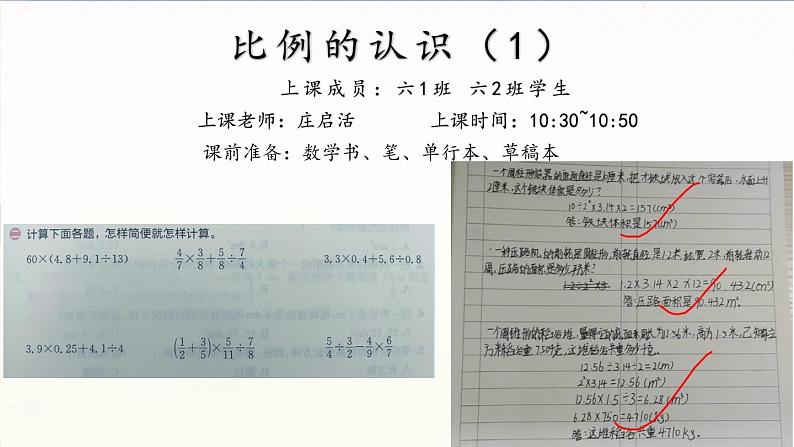 比例的认识（1）
上课成员：六1班 六2班学生
上课老师：庄启活 上课时间：10:30~10:50
课前准备：数学书、笔、单行本、草稿本
二 计算下面各题，怎样简便就怎样计算。
60×(4.8+9.1÷13) 4/7×3/8+5/8÷7/4 3.3×0.4+5.6÷0.8
3.9×0.25+4.1÷4 (1/2+3/5)×5/11÷7/8 5/4÷3/2-4/9×6/7
一个圆柱形容器的底面直径是10厘米,把一块铁块放入这个容器后,水面上升
2厘米,这个铁块体积是多少?
10÷2 ×3.14×2=157(cm³)
答:铁块体积是157(cm³)
一种压路机的前轮是圆柱形,前轮直径是1.2米,长2米,前轮转动12
周,压路的面积是多少平方米?
1.2×3.14×2×12=90.432(cm²)
答:压路面积是90.432m².
一个圆锥形的稻谷堆,量得它的底面周长为12.56米,高为1.5米,已知每立
方米稻谷重750千克,这堆稻谷共重多少千克。
12.56÷3.14÷2=2(m)
2²×3.14=12.56(m²)
12.56×1.5÷3=6.28(m³)
6.28×750=4710(kg)
答:这堆稻谷共重4710kg.